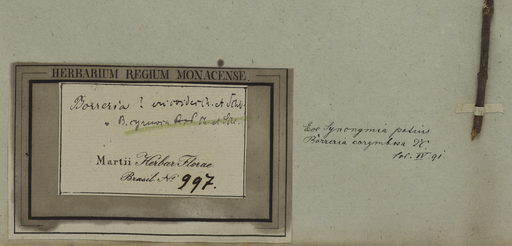 HERBARIUM REGIUM MONACENSE.
Borreria ? et Sch.
B. et Sch.
Martii Herbar. Florae
Brasil. No 997.
Ex Synonymia potius
Borreria corymbosa DC.
Vol. IV 91